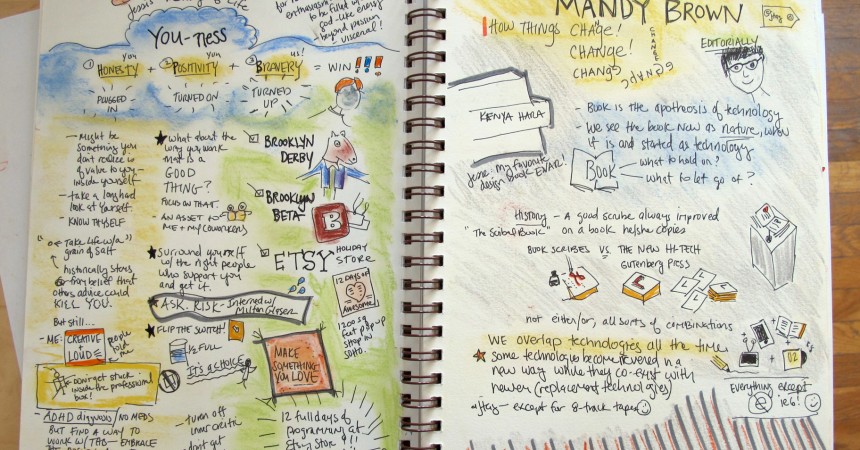 for
enthusiasm
to be filled
god-like energy
beyond passion
visceral!
of Life
YOU-NESS
You
you
us!
① HONESTY + ② POSITIVITY + ③ BRAVERY = WIN!!!
PLUGGED IN
TURNED ON
TURNED UP
- Might be
something you
don't realize is
of value to you -
inside yourself
- take a long hard
look at yourself
- KNOW THYSELF
"Take life w/a
grain of salt"
historically stories
belief that
others advice could
KILL YOU.
But still...
- ME:
CREATIVE
+
LOUD
people
told
me
Don't get stuck
inside the professional
box!
- ADHD diagnosis/NO MEDS
BUT FIND A WAY TO
WORK W/THIS - EMBRACE
★ What about the
way you work
that is a
GOOD
THING?
FOCUS ON THAT.
AN ASSET TO
ME + MY COWORKERS
★ Surround yourself
w/ the right people
who support you
and get it.
★ ASK. RISK - Interned w/
Milton Glaser
★ FLIP THE SWITCH!
½ FULL
IT'S A CHOICE
- turn off
inner critic
- don't get
BROOKLYN
DERBY
BROOKLYN
BETA
B
ETSY HOLIDAY
STORE
12 DAYS OF
AWESOME
1200 sq
feet pop-up
shop in
SOHO.
MAKE
SOMETHING
YOU LOVE
12 full days of
programming at
Etsy store!!!
MANDY BROWN
HOW THINGS CHANGE!
CHANGE!
CHANGE
CHANGE
CHANGE
EDITORIALLY
KENYA HARA
Jesse: My favorite
design Book EVAR!
- BOOK IS THE apotheosis of technology
- We see the book now as nature, when
it is and started as technology
BOOK
- what to hold on?
- what to let go of?
History - A good scribe always improved
"The Scribal Book" on a book he/she copies
BOOK SCRIBES VS. THE NEW HI-TECH
Gutenberg PRESS
not either/or, all sorts of combinations
WE overlap technologies all the time
★ Some technology become revered in a
new way while they co-exist with
newer (replacement technologies)
- except for 8-track tapes
Everything except
ie6!